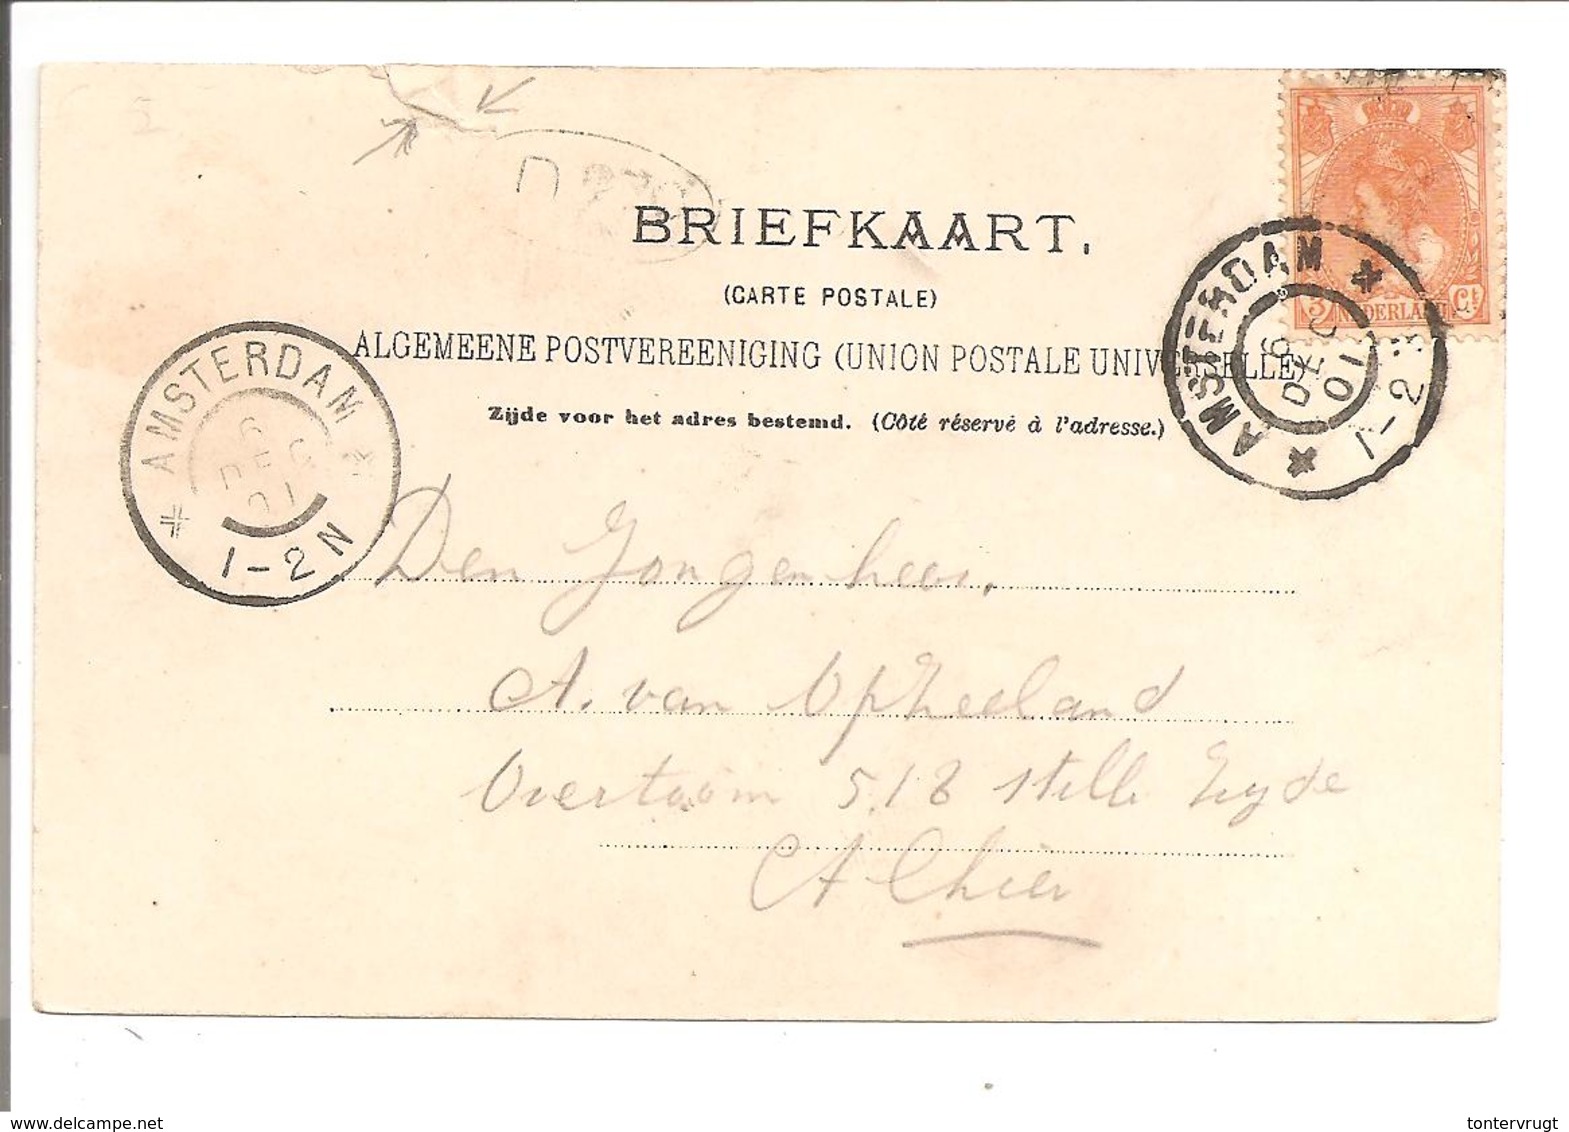 BRIEFKAART.
(CARTE POSTALE)
ALGEMEENE POSTVEREENIGING (UNION POSTALE UNIVERSELLE)
Zijde voor het adres bestemd. (Côté réservé à l'adresse.)
3 NEDERLAND Ct
AMSTERDAM
6
DEC
01
1-2
AMSTERDAM
6
DEC
01
1-2N
Den Jongenheer,
A. van Opheeland
Overtoom 518 stille Zyde
Alhier
delcampe.net
tontervrugt